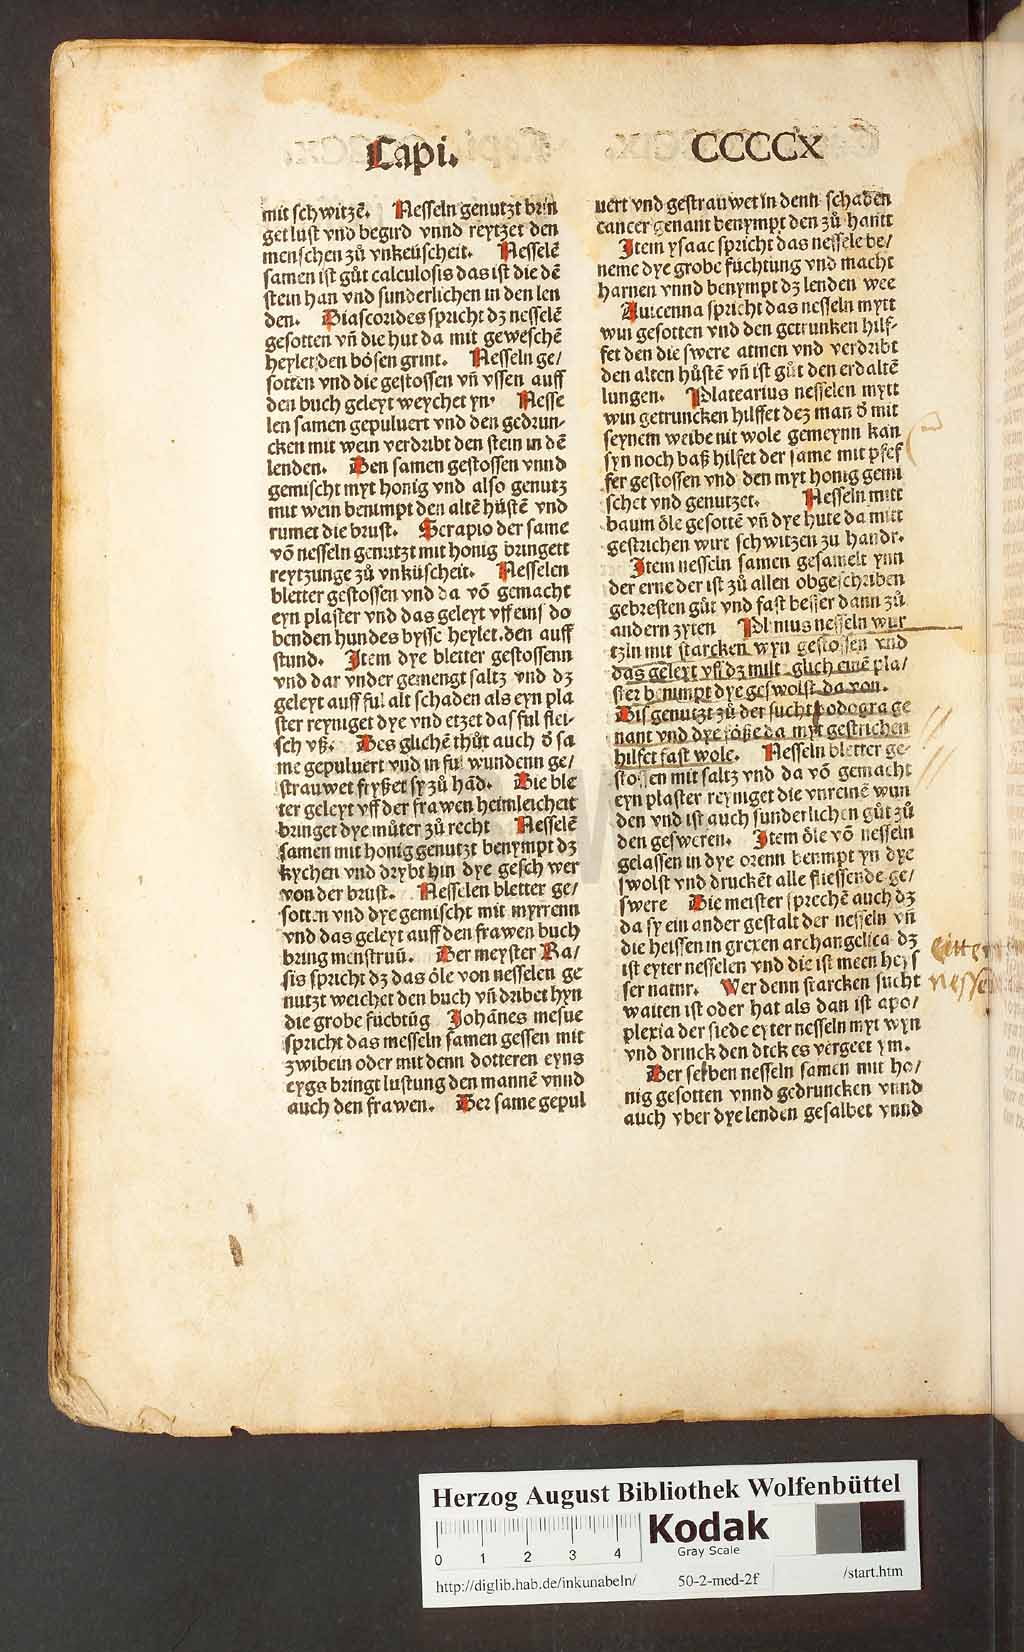 Capi.
CCCCX
mit schwitzē. Nesseln genutzt brin
get lust vnd begird vnnd reytzet den
menschen zů vnkeüscheit. Nesselē
samen ist gůt calculosis das ist die dē
stein han vnd sunderlichen in den len
den. Diascorides spricht dz nesselē
gesotten vñ die hut da mit geweschē
heylet den bösen grint. Nesseln ge/
sotten vnd die gestossen vñ vssen auff
den buch geleyt weychet yn' Nesse
len samen gepuluert vnd den gedrun-
cken mit wein verdribt den stein in dē
lenden. Den samen gestossen vnnd
gemischt myt honig vnd also genutz
mit wein benimpt den altē hůstē vnd
rumet die brust. Serapio der same
võ nesseln genutzt mit honig bringett
reytzunge zů vnküscheit. Nesselen
bletter gestossen vnd da võ gemacht
eyn plaster vnd das geleyt vff eins do
benden hundes bysse heylet.den auff
stund. Item dye bletter gestossenn
vnd dar vnder gemengt saltz vnd dz
geleyt auff ful alt schaden als eyn pla
ster reyniget dye vnd etzet das ful flei-
sch vß. Des glichē thůt auch d' sa
me gepuluert vnd in ful wundenn ge/
strauwet fryßet sy zů hãd. Die ble
ter geleyt vff der frawen heimleicheit
bringet dye můter zů recht Nesselē
samen mit honig genutzt benympt dz
kychen vnd drybt hin dye geschwer
von der brust. Nesselen bletter ge/
sotten vnd dye gemischt mit myrrenn
vnd das geleyt auff den frawen buch
bring menstruũ. Der meyster Ra/
sis spricht dz das öle von nesselen ge
nutzt weichet den buch vñ dribet hyn
die grobe fücbtũg Johãnes mesue
spricht das messeln samen gessen mit
zwibeln oder mit denn dotteren eyns
eygs bringt lustung den mannē vnnd
auch den frawen. Der same gepul
uert vnd gestrauwet in denn schaden
cancer genant benympt den zů hantt
Item ysaac spricht das nessele be/
neme dye grobe füchtung vnd macht
harnen vnnd benympt dz lenden wee
Auicenna spricht das nesseln mytt
win gesotten vnd den getrunken hilf-
fet den die swere atmen vnd verdribt
den alten hůstē vñ ist gůt den erdaltē
lungen. Platearius nesselen mytt
win getruncken hilffet dez man d' mit
seynem weibe nit wole gemeynn kan
syn noch baß hilfet der same mit pfef
fer gestossen vnd den myt honig gemi
schet vnd genutzet. Nesseln mitt
baum öle gesottē vñ dye hute da mitt
gestrichen wirt schwitzen zu handt.
Item nesseln samen gesamelt ynn
der erne der ist zů allen obgeschriben
gebresten gůt vnd fast besser dann zů
andern zyten Plinius nesseln wur
tzln mit starcken wyn gestossen vnd
das geleyt vff dz miltz glich einē pla/
ster benimpt dye geswolst da von.
Dis genutzt zů der sucht podogra ge
nant vnd dye föße da myt gestrichen
hilfet fast wole. Nesseln bletter ge-
stossen mit saltz vnd da võ gemacht
eyn plaster reyniget die vnreinē wun
den vnd ist auch sunderlichen gůt zů
den gesweren. Item öle võ nesseln
gelassen in dye orenn benimpt yn dye
swolst vnd druckēt alle fliessende ge/
swere Die meister sprechē auch dz
da sy ein ander gestalt der nesseln vñ
die heissen in grexen archangelica dz
ist eyter nesselen vnd die ist meen heys
ser natnr. Wer denn starcken sucht
waiten ist oder hat als dan ist apo/
plexia der siede eyter nesseln myt wyn
vnd drinck den dick es vergeet ym.
Der selben nesseln samen mit ho/
nig gesotten vnnd gedruncken vnnd
auch vber dye lenden gesalbet vnnd
Herzog August Bibliothek Wolfenbüttel
0 1 2 3 4
Kodak
Gray Scale
http://diglib.hab.de/inkunabeln/ 50-2-med-2f /start.htm